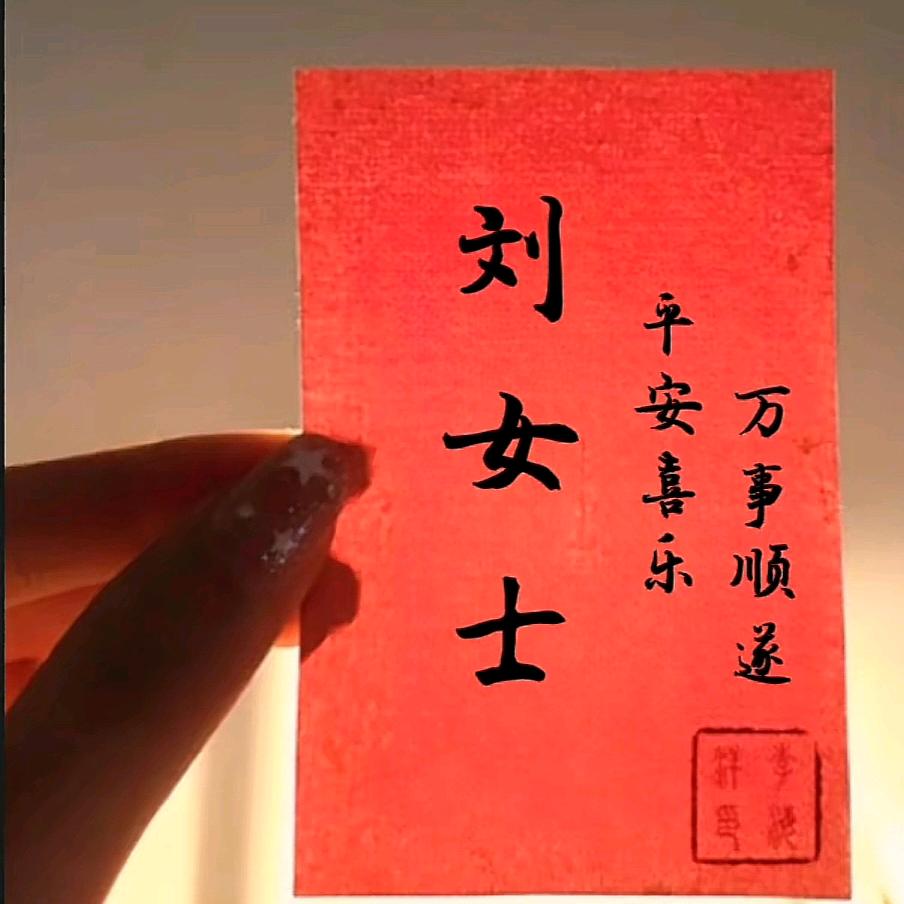 万事顺遂
平安喜乐
刘女士